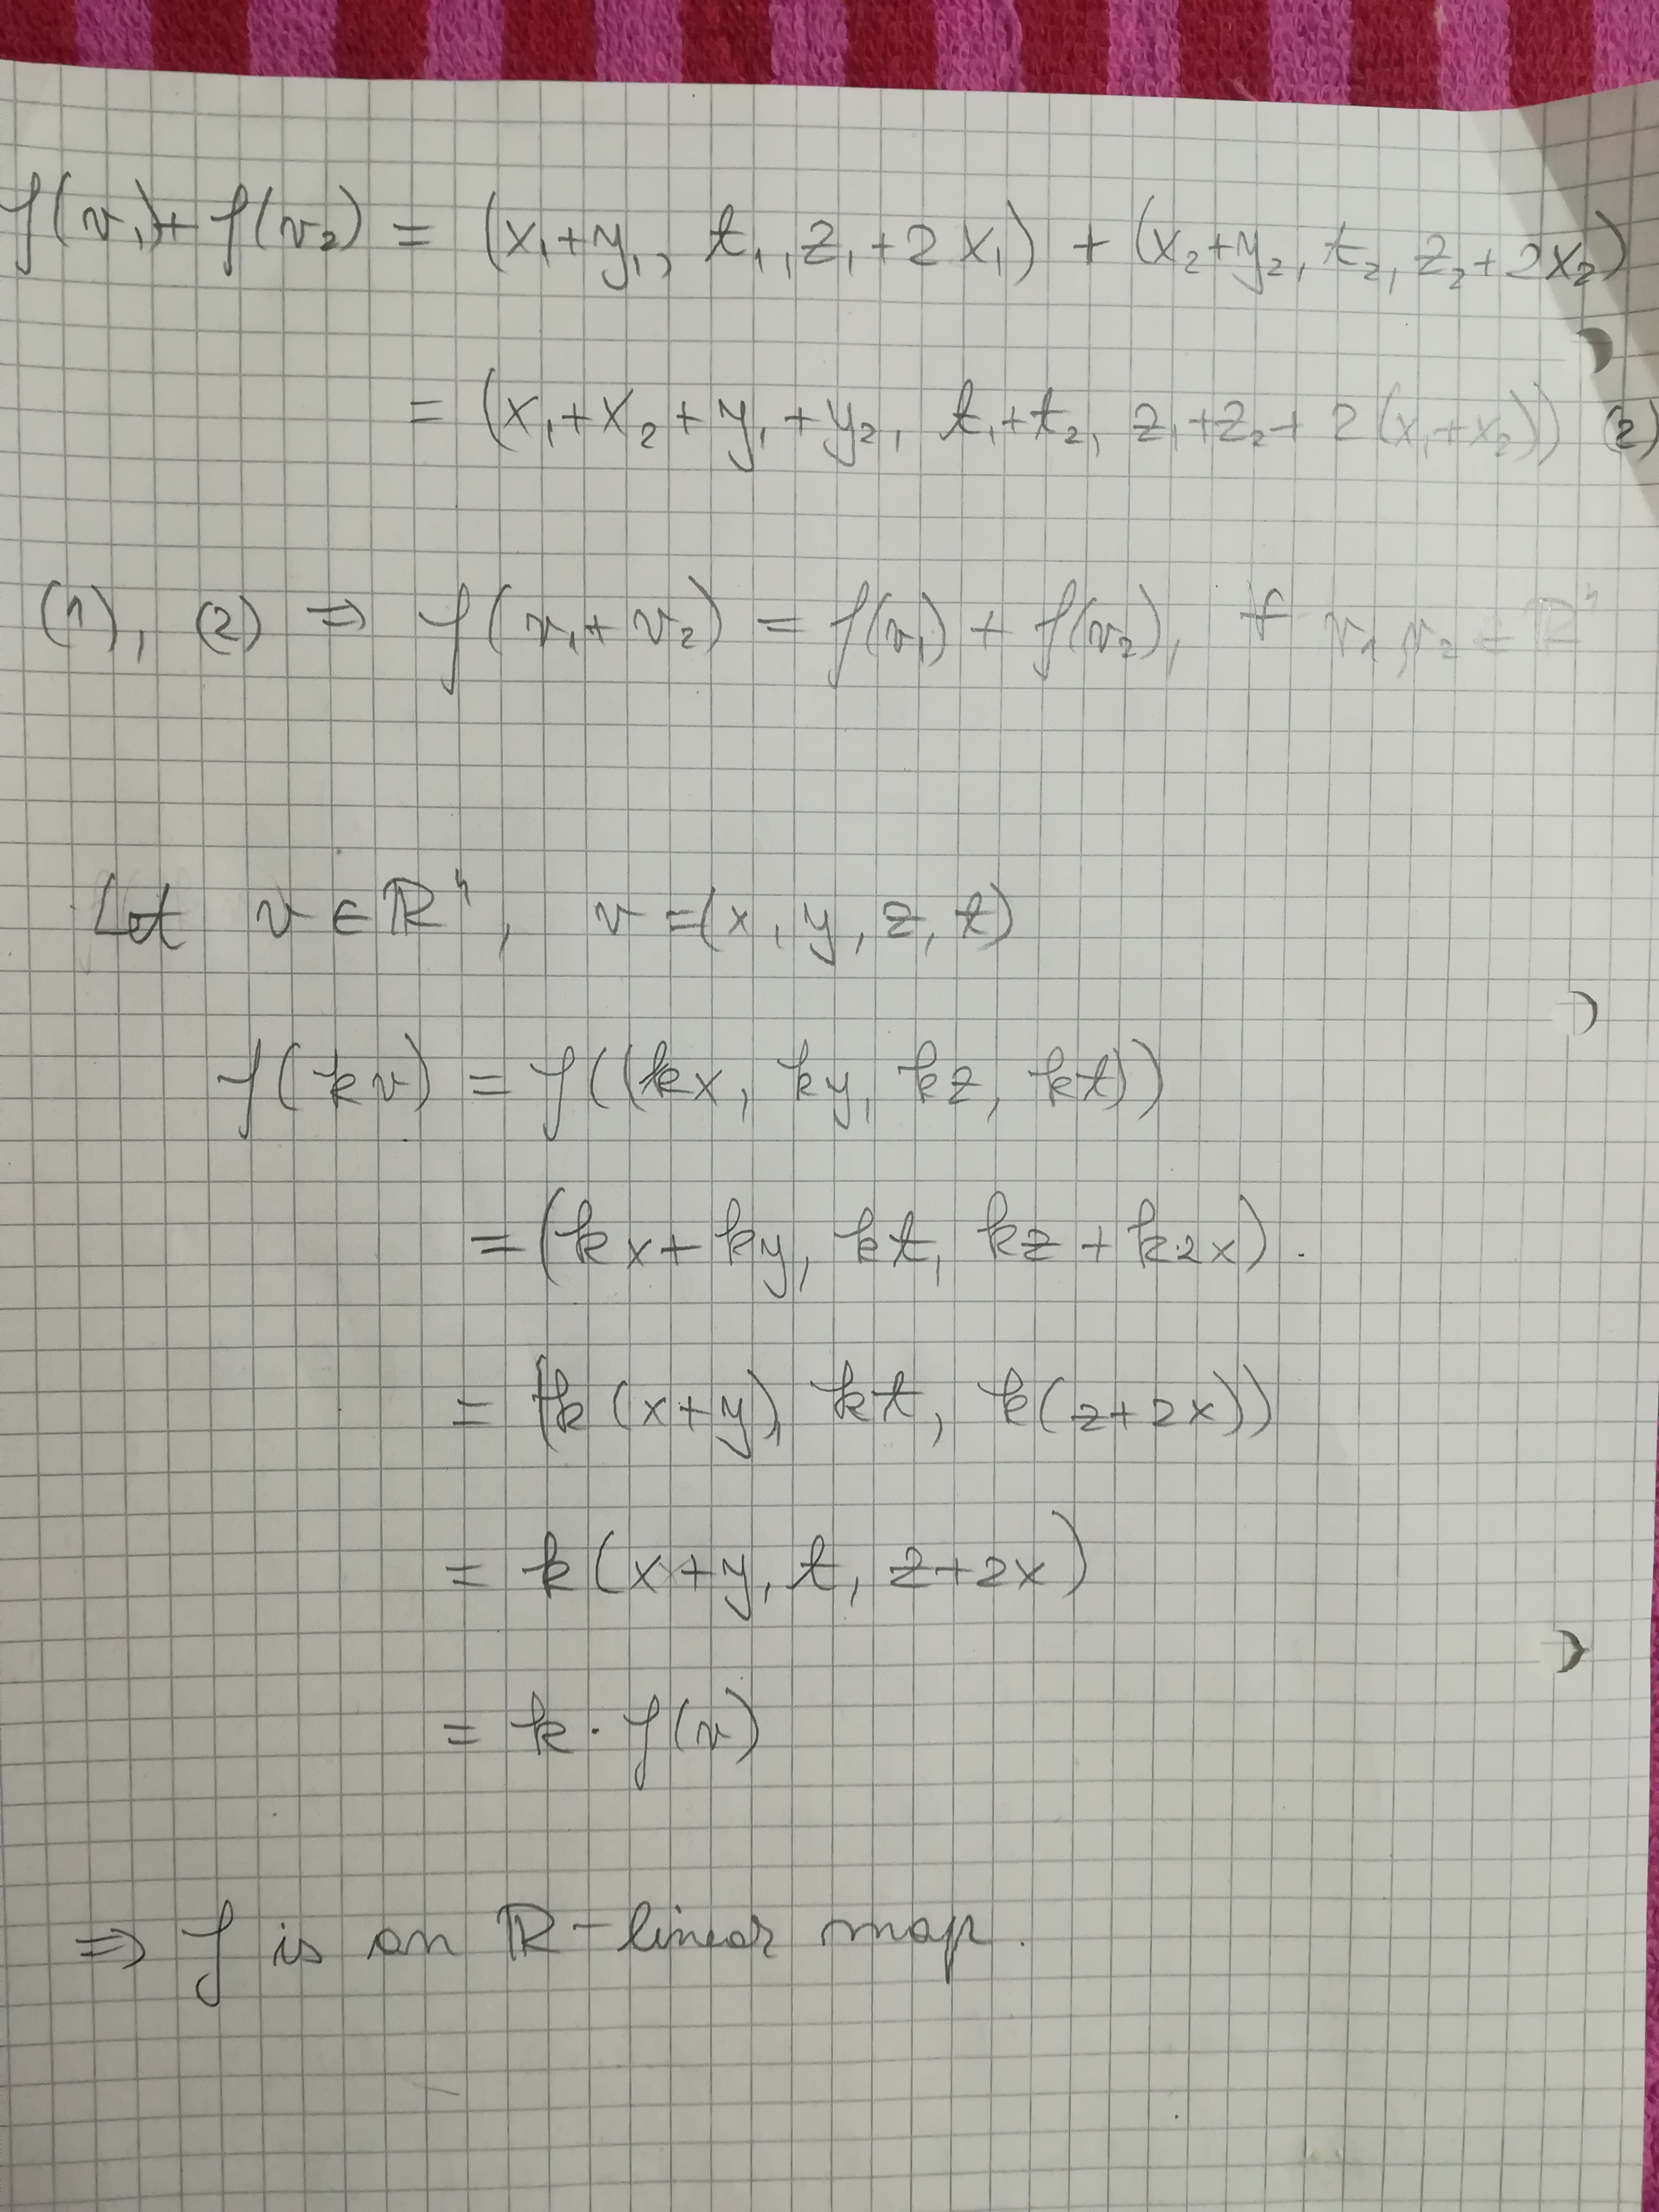 f(v₁)+ f(v₂) = (x₁+y₁, t₁, z₁+2x₁) + (x₂+y₂, t₂, z₂+2x₂)
= (x₁+x₂+y₁+y₂, t₁+t₂, z₁+z₂+ 2(x₁+x₂)) (2)
(1), (2) ⇒ f(v₁+v₂) = f(v₁) + f(v₂), ∀ v₁, v₂ ∈ ℝ⁴
Let v ∈ ℝ⁴, v =(x, y, z, t)
f(kv) = f((kx, ky, kz, kt))
= (kx+ky, kt, kz + k·2x).
= (k(x+y), kt, k(z+2x))
= k(x+y, t, z+2x)
= k · f(v)
⇒ f is an ℝ-linear map.